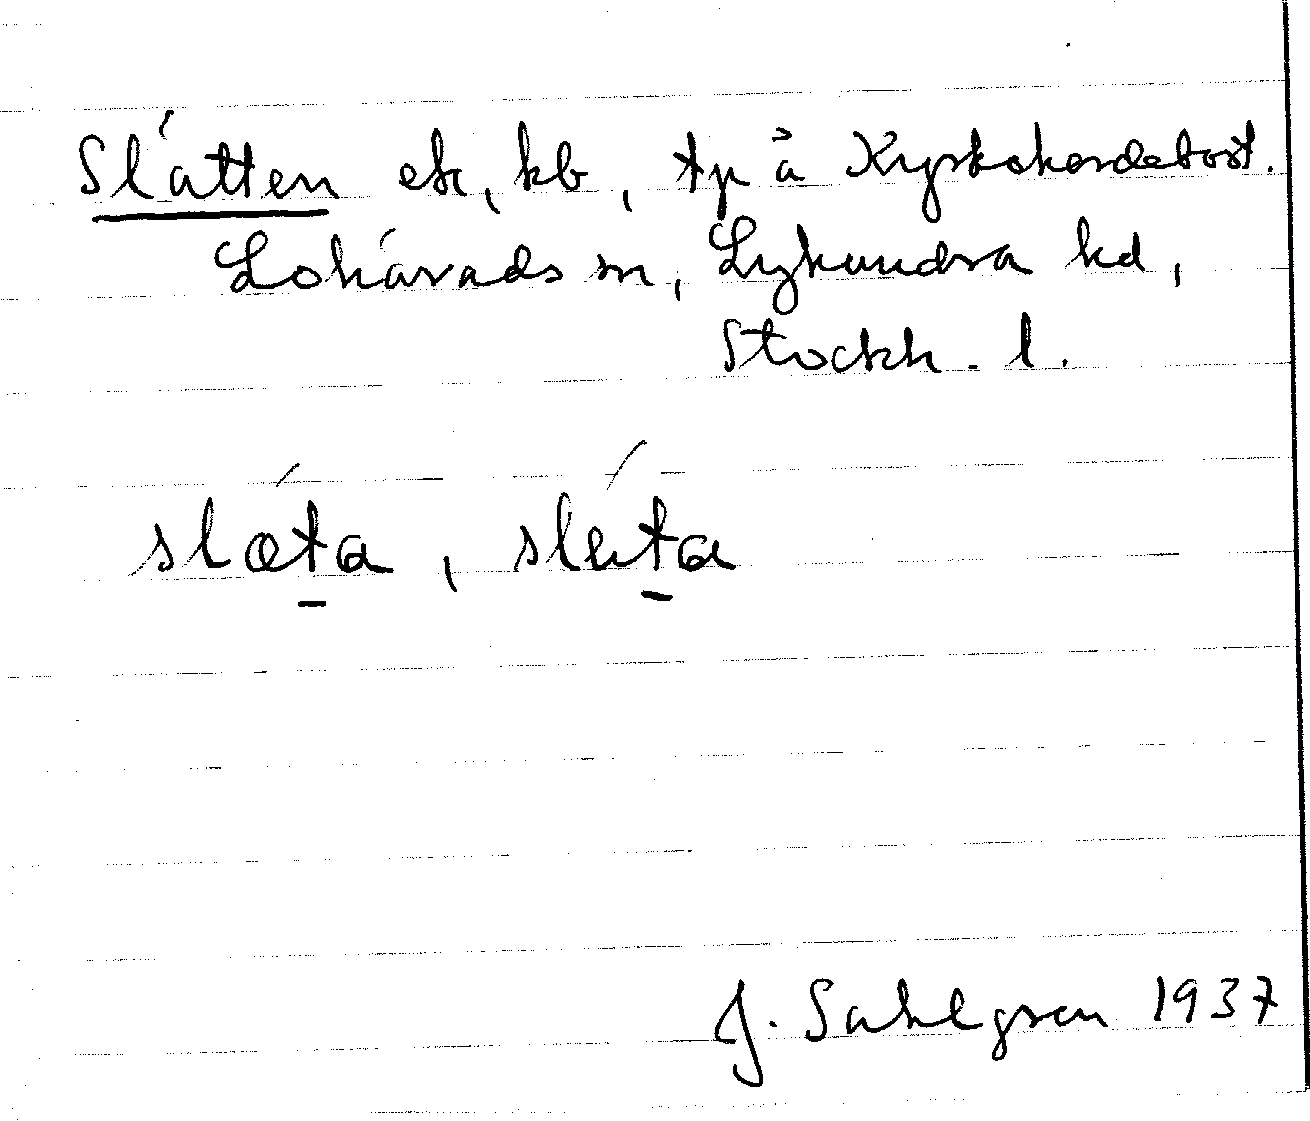 Slätten ek, kb, tp å Kyrskohordebost.
Lohärads sn, Lyhundra hd,
Stockh. l.
slæta, sleta
J. Sahlgren 1937